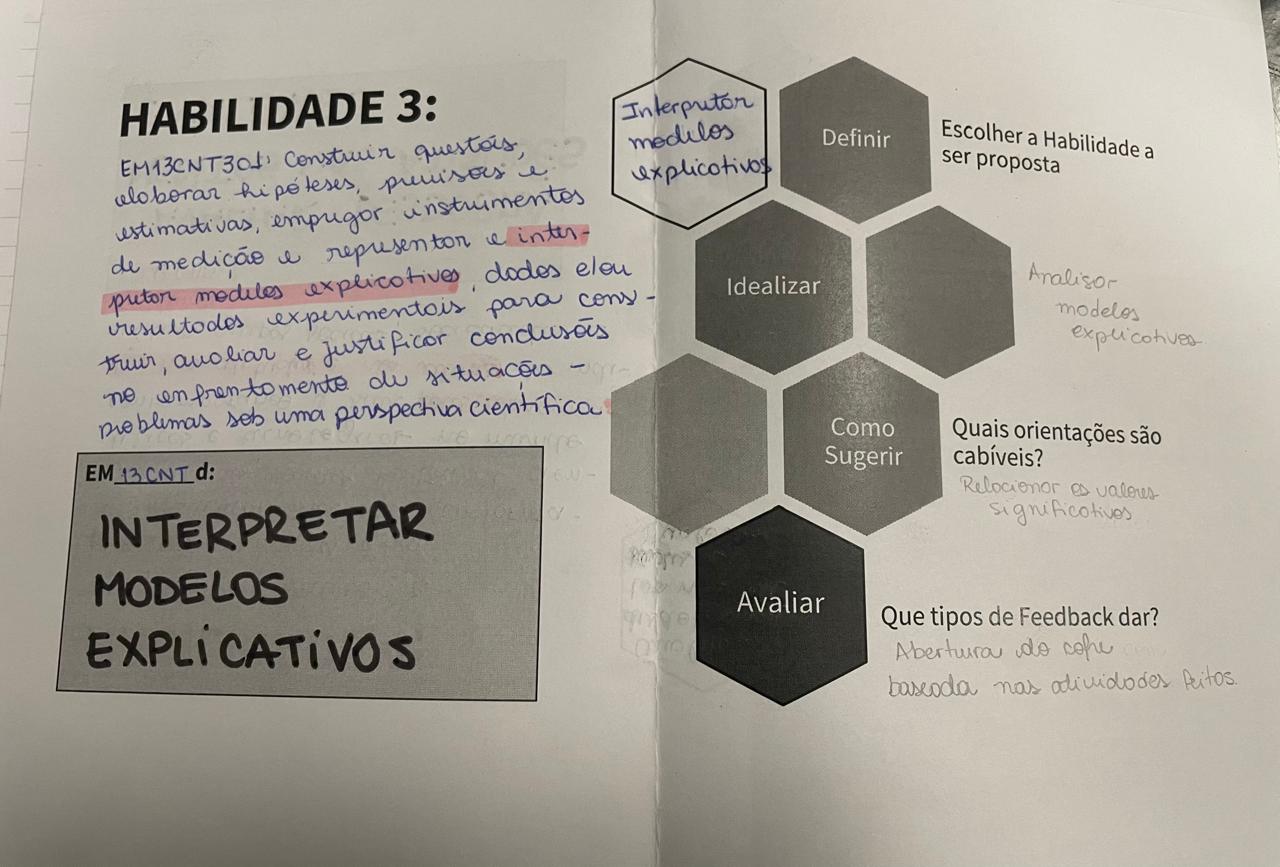 HABILIDADE 3:
EM13CNT301: Construir questões,
elaborar hipóteses, previsões e
estimativas, empregar instrumentos
de medição e representar e inter-
pretar modelos explicativos, dados e/ou
resultados experimentais para cons-
truir, avaliar e justificar conclusões
no enfrentamento de situações-
problemas sob uma perspectiva científica
EM 13CNT d:
INTERPRETAR
MODELOS
EXPLICATIVOS
Interpretar
modelos
explicativos
Definir
Escolher a Habilidade a
ser proposta
Idealizar
Analisar
modelos
explicativos
Como
Sugerir
Quais orientações são
cabíveis?
Relacionar os valores
significativos
Avaliar
Que tipos de Feedback dar?
Abertura do cofre
baseada nas atividades feitas.